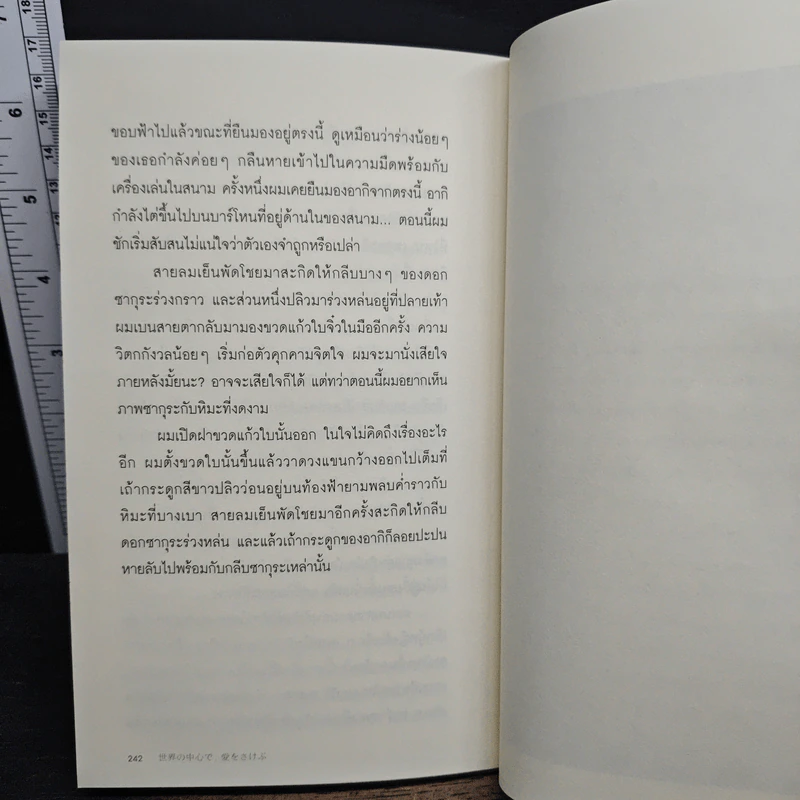 ขอบฟ้าไปแล้วขณะที่ยืนมองอยู่ตรงนี้ ดูเหมือนว่าร่างน้อยๆ
ของเธอกำลังค่อยๆ กลืนหายเข้าไปในความมืดพร้อมกับ
เครื่องเล่นในสนาม ครั้งหนึ่งผมเคยยืนมองอากิจากตรงนี้ อากิ
กำลังไต่ขึ้นไปบนบาร์โหนที่อยู่ด้านในของสนาม... ตอนนี้ผม
ชักเริ่มสับสนไม่แน่ใจว่าตัวเองจำถูกหรือเปล่า
สายลมเย็นพัดโชยมาสะกิดให้กลีบบางๆ ของดอก
ซากุระร่วงกราว และส่วนหนึ่งปลิวมาร่วงหล่นอยู่ที่ปลายเท้า
ผมเบนสายตากลับมามองขวดแก้วใบจิ๋วในมืออีกครั้ง ความ
วิตกกังวลน้อยๆ เริ่มก่อตัวคุกคามจิตใจ ผมจะมานั่งเสียใจ
ภายหลังมั้ยนะ? อาจจะเสียใจก็ได้ แต่ทว่าตอนนี้ผมอยากเห็น
ภาพซากุระกับหิมะที่งดงาม
ผมเปิดฝาขวดแก้วใบนั้นออก ในใจไม่คิดถึงเรื่องอะไร
อีก ผมตั้งขวดใบนั้นขึ้นแล้ววาดวงแขนกว้างออกไปเต็มที่
เถ้ากระดูกสีขาวปลิวว่อนอยู่บนท้องฟ้ายามพลบค่ำราวกับ
หิมะที่บางเบา สายลมเย็นพัดโชยมาอีกครั้งสะกิดให้กลีบ
ดอกซากุระร่วงหล่น และแล้วเถ้ากระดูกของอากิก็ลอยปะปน
หายลับไปพร้อมกับกลีบซากุระเหล่านั้น
242 世界の中心で、愛をさけぶ
7
6
5
4
3
18
17
16
15
14
13
12
11
10
9
8